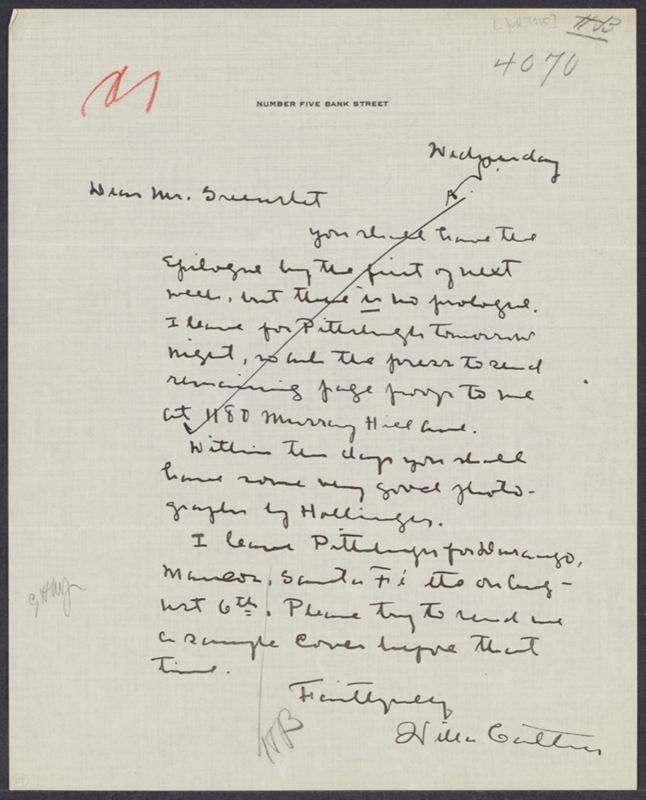 HB
4070
NUMBER FIVE BANK STREET
Wednesday
Dear Mr. Greenslet
you shall have the
Epilogue by the first of next
week, but there is no prologue.
I leave for Pittsburgh tomorrow
night, so ask the press to send
remaining page proofs to me
at 1180 Murray Hill ave.
Within ten days you shall
have some very good photo-
graphs by Hollinger.
I leave Pittsburgh for Durango,
Mancos, Santa Fé etc on Aug-
ust 6th. Please try to send me
a sample cover before that
time.
Faithfully
Willa Cather
HB